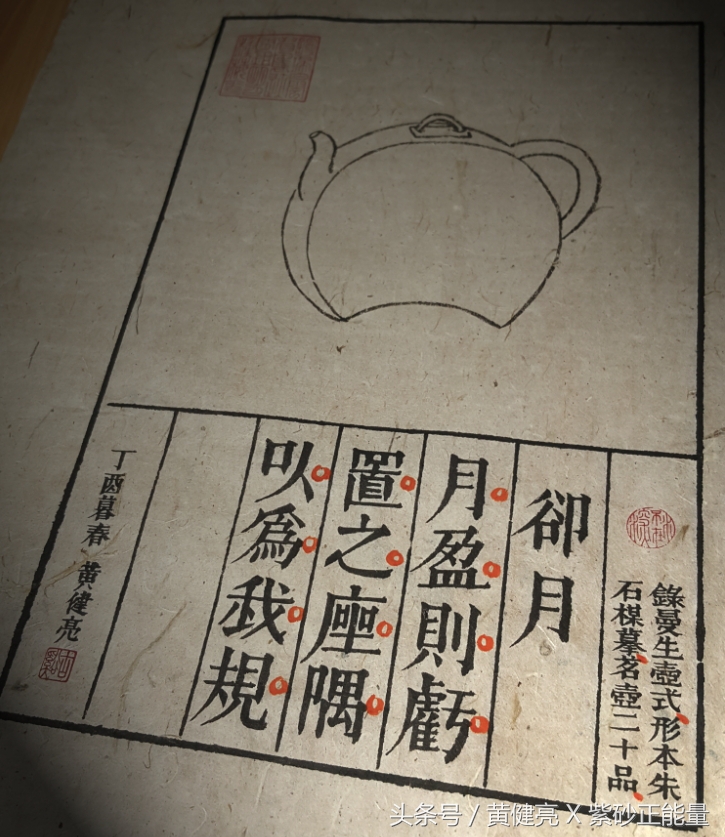 錄曼生壺式形本朱
石楳摹茗壺二十品
卻月
月盈則虧
置之座隅
以爲我規
丁酉暮春 黃健亮
头条号 / 黄健亮 X 紫砂正能量